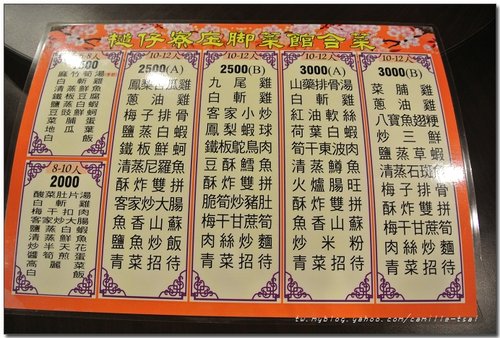 樋仔寮庄脚菜館合菜
麻竹筍湯
白斬雞
清蒸鮮魚
鐵板豆腐
鹽蒸白蝦
豆豉鮮蚵
菜脯蛋
地瓜葉
白飯
8-10人
2000
酸菜肚片湯
白斬雞
梅干扣肉
客家炒大腸
鹽蒸白蝦
清蒸鮮魚
炒半天花
醬筍煎蛋
高麗菜
白飯
10-12人
2500(A)
鳳梨苦瓜雞
蔥油雞
梅子排骨
鹽蒸白蝦
鐵板鮮蚵
清蒸尼羅魚
酥炸雙拼
客家炒大腸
魚香山蘇
鹽魚炒飯
青菜招待
10-12人
2500(B)
九尾雞
白斬雞
客家小炒
鳳梨蝦球
鐵板鴕鳥肉
豆酥鱈魚
酥炸雙拼
脆筍炒豬肚
梅干甘蔗筍
肉絲炒麵
青菜招待
10-12人
3000(A)
山藥排骨湯
白斬雞
紅油軟絲
荷葉白蝦
筍干東波肉
清蒸鱒魚
火爐腸旺
酥炸雙拼
魚香山蘇
炒米粉
青菜招待
10-12人
3000(B)
菜脯雞
蔥油雞
八寶魚翅羹
炒三鮮
鹽蒸草蝦
清蒸石斑魚
梅子排骨
酥炸雙拼
梅干甘蔗筍
肉絲炒麵
青菜招待
tw.myblog.yahoo.com/camille-tsai